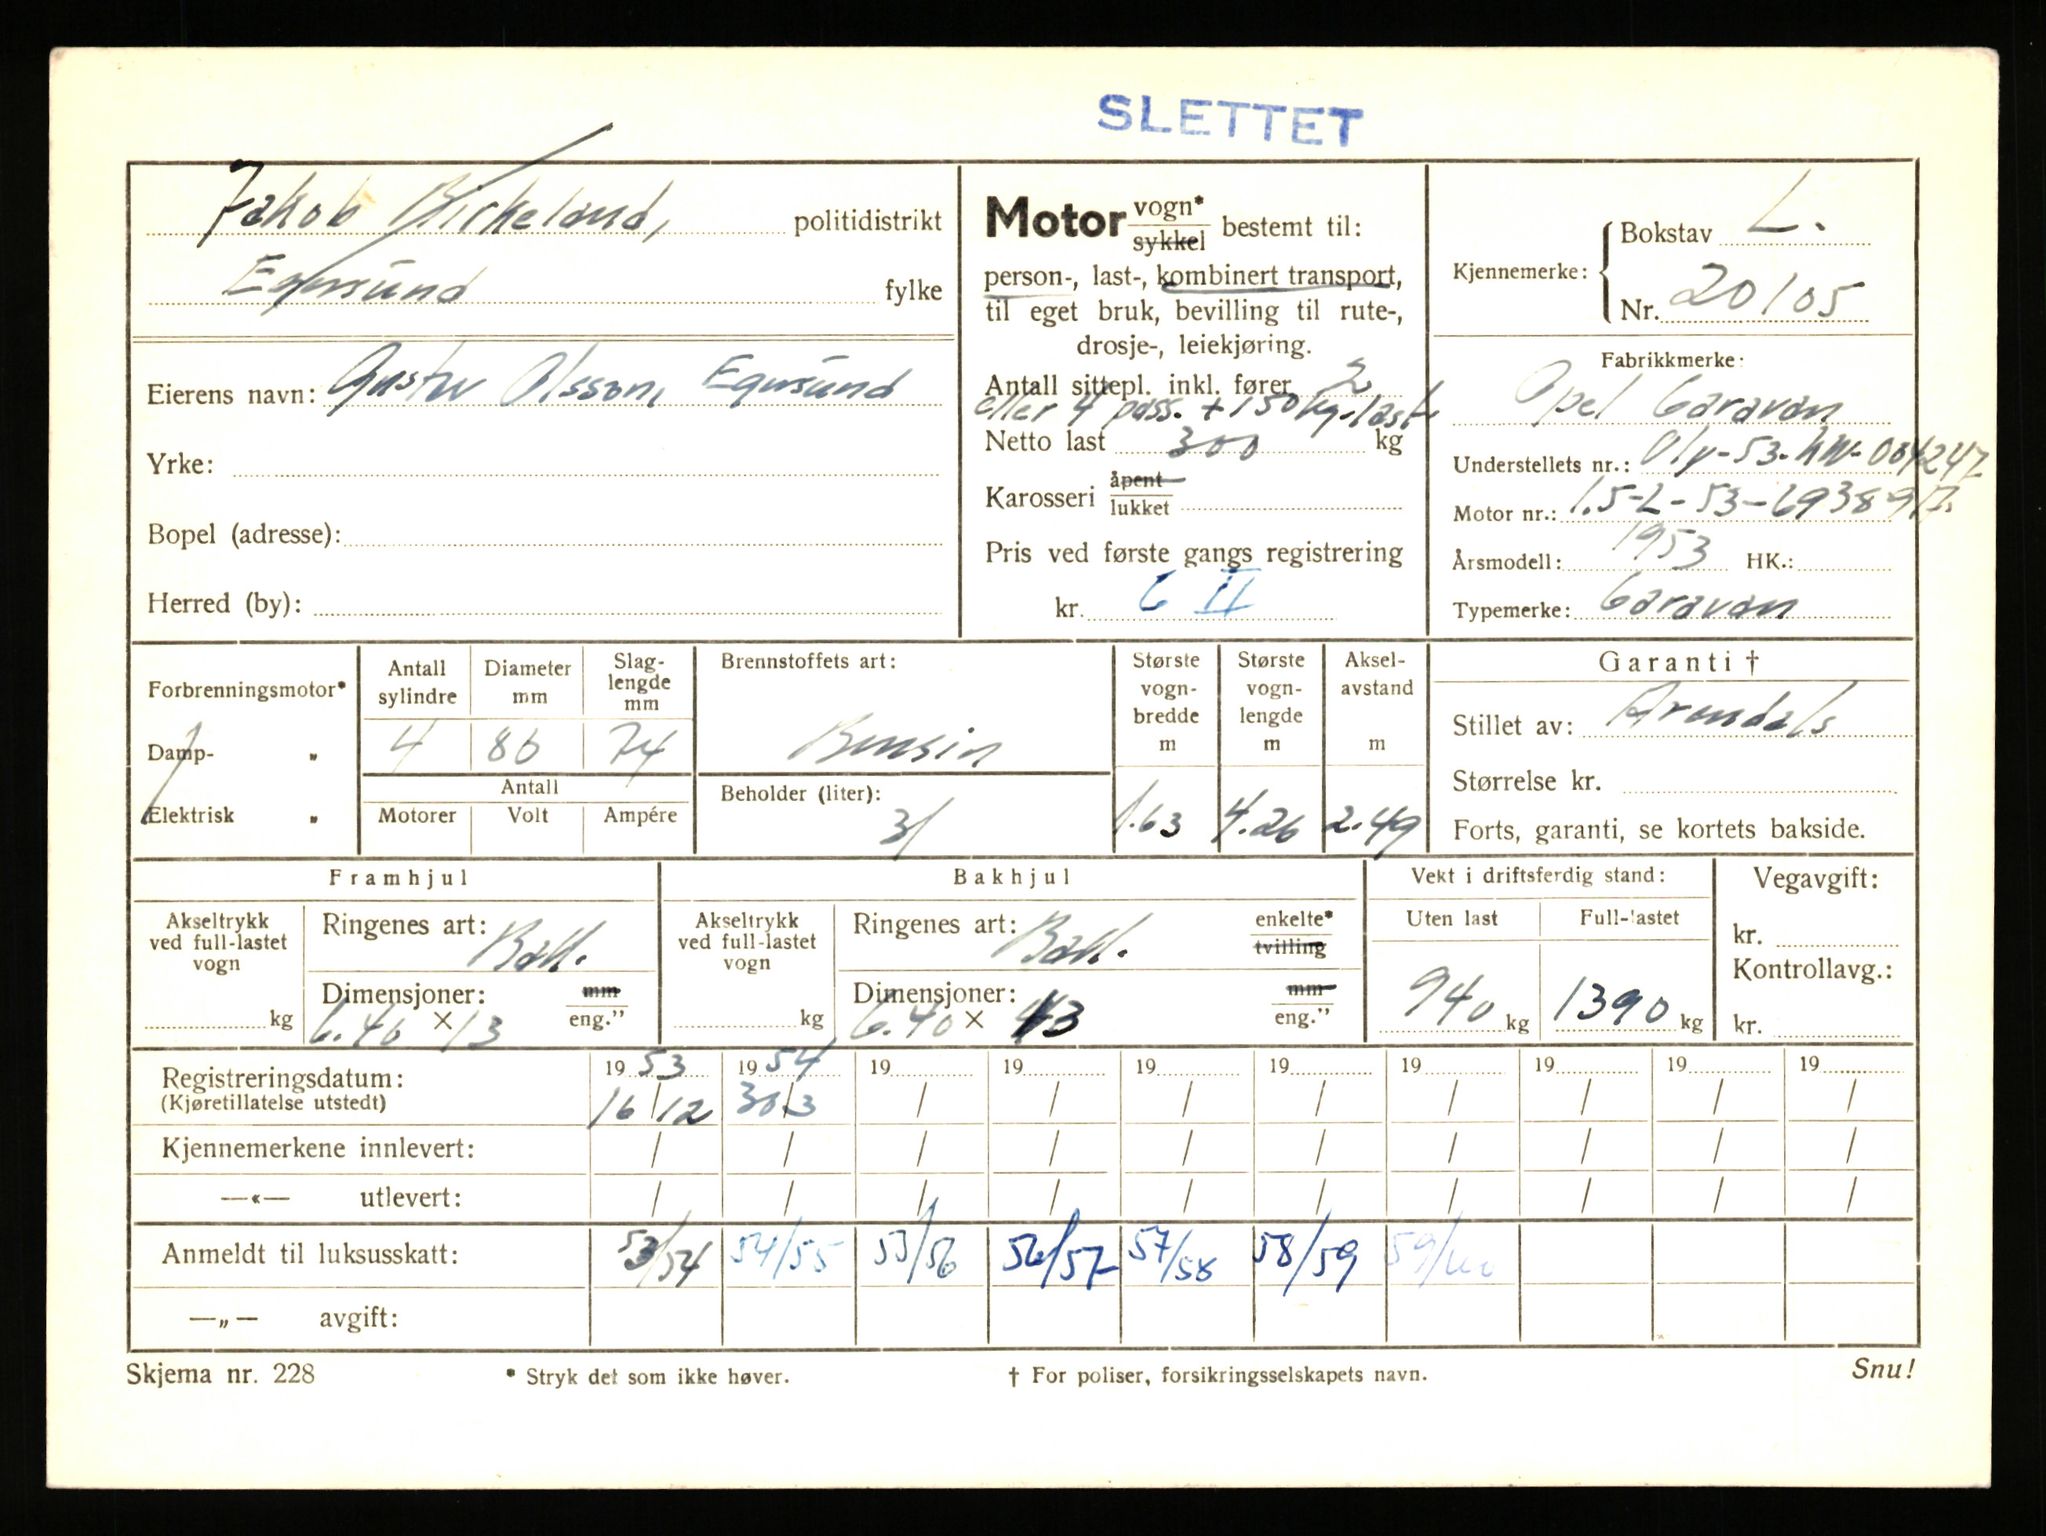 SLETTET
Jakob Birkeland, politidistrikt
Egersund fylke
Eierens navn: Gustav Olsson, Egersund
Yrke:
Bopel (adresse):
Herred (by):
Motor vogn* sykkel bestemt til:
person-, last-, kombinert transport,
til eget bruk, bevilling til rute-,
drosje-, leiekjøring.
Antall sittepl. inkl. fører 2
eller 4 pass. + 150 kg. last
Netto last 300 kg
Karosseri åpent lukket
Pris ved første gangs registrering
kr. 6 II
Kjennemerke: Bokstav L.
Nr. 20105
Fabrikkmerke:
Opel Caravan
Understellets nr.: Oly-53.
Motor nr.: 1.5-L-53-693897
Årsmodell: 1953 HK.:
Typemerke: Caravan
Forbrenningsmotor*
Damp- „
Elektrisk „
Antall sylindre
Diameter mm
Slag-lengde mm
4 80 74
Antall
Motorer Volt Ampére
Brennstoffets art:
Bensin
Beholder (liter):
31
Største vogn-bredde m
1.63
Største vogn-lengde m
4.26
Aksel-avstand m
2.49
Garanti †
Stillet av: Arendals
Størrelse kr.
Forts, garanti, se kortets bakside.
Framhjul
Akseltrykk ved full-lastet vogn
kg
Ringenes art: Ball.
Dimensjoner: mm eng.”
6.40 × 13
Bakhjul
Akseltrykk ved full-lastet vogn
kg
Ringenes art: Ball. enkelte* tvilling
Dimensjoner: mm eng.”
6.40 × 13
Vekt i driftsferdig stand:
Uten last Full-lastet
940 kg 1390 kg
Vegavgift:
kr.
Kontrollavg.:
kr.
Registreringsdatum: 1953 1954 19 19 19 19 19 19 19 19
(Kjøretillatelse utstedt) 16/12 30/3 / / / / / / / /
Kjennemerkene innlevert: / / / / / / / / / /
—«— utlevert: / / / / / / / / / /
Anmeldt til luksusskatt: 53/54 54/55 55/56 56/57 57/58 58/59 59/60
—„— avgift:
Skjema nr. 228 * Stryk det som ikke høver. † For poliser, forsikringsselskapets navn. Snu!